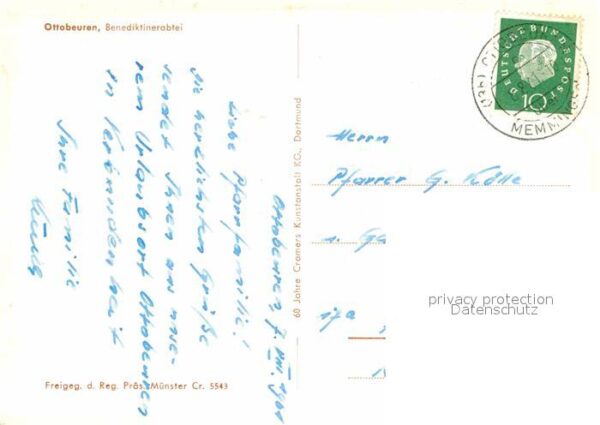 Ottobeuren, Benediktinerabtei
Ottobeuren, 7. VIII. 1961
Liebe Pfarrfamilie!
Die herzlichsten Grüße
sendet Ihnen aus unse-
rem Urlaubsort Ottobeuren
in Verbundenheit
Ihre Familie
Freigeg. d. Reg. Präs. Münster Cr. 5543
60 Jahre Cramers Kunstanstalt KG., Dortmund
DEUTSCHE BUNDESPOST
10
MEMMINGEN
Herrn
Pfarrer G.
privacy protection
Datenschutz